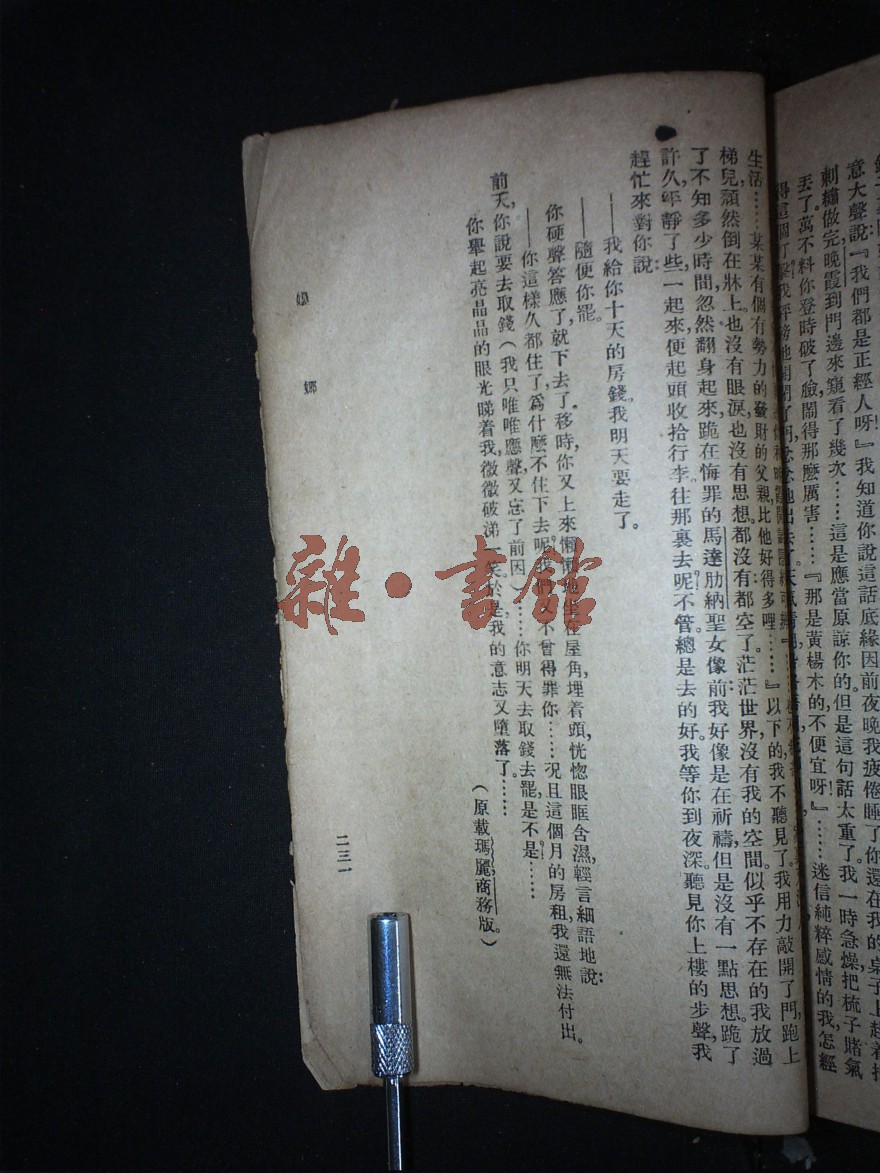 意大聲說『我們都是正經人呀!』我知道你說這話底緣因前夜晚我疲倦睡了你還在我的桌子上趕着
刺繡做完晚霞到門邊來窺看了幾次……這是應當原諒你的但是這句話太重了。我一時急燥,把梳子賭氣
丟了。萬不料你登時破了臉,鬧得那麽厲害……『那是黃楊木的,不便宜呀!』……迷信純粹感情的我,怎經
得這個
生活……某某有個有勢力的發財的父親,比他好得多哩……』以下的我不聽見了。我用力敲開了門,跑上
梯兒,頹然倒在牀上。也沒有眼淚,也沒有思想,都沒有:都空了。茫茫世界,沒有我的空間。似乎不存在的我放過
了不知多少時間,忽然翻身起來,跪在悔罪的馬達肋納聖女像前。我好像是在祈禱,但是沒有一點思想。跪了
許久,平靜了些,一起來,便起頭收拾行李。往那裏去呢?不管,總是去的好。我等你到夜深。聽見你上樓的步聲,我
趕忙來對你說:
——我給你十天的房錢。我明天要走了。
——隨便你罷。
你硬聲答應了,就下去了。移時,你又上來,懶懶地坐在屋角,埋着頭,恍惚眼眶含濕,輕言細語地說:
——你這樣久都住了,爲什麽不住下去呢?我們又不曾得罪你……况且這個月的房租,我還無法付出。
前天,你說要去取錢(我只唯唯應聲,又忘了前因)……你明天去取錢去罷,是不是……
你舉起亮晶晶的眼光睇着我,微微破涕一笑。於是,我的意志又墮落了。……
(原載瑪麗,商務版。)
娜
二三一
雜·書館